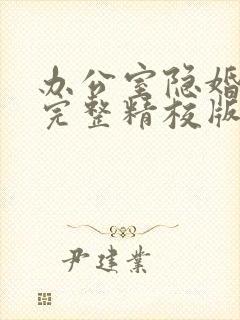 办公室隐婚
完整精校版
尹建業